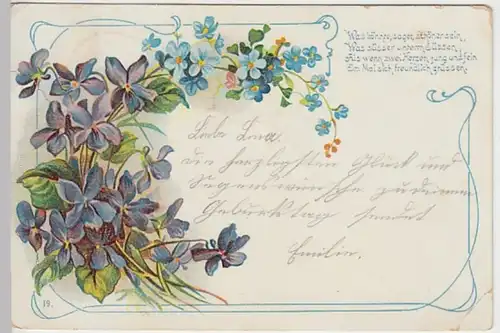 Was könnte, sagt, schöner sein,
Was süsser unserm
Als wenn zwei Herzen jung und fein
Im Mai sich freundlich grüssen.
Liebe
die herzlichsten Glück und
Segenswünsche zu deinem
Geburtstag sendet
Emilie.
19.